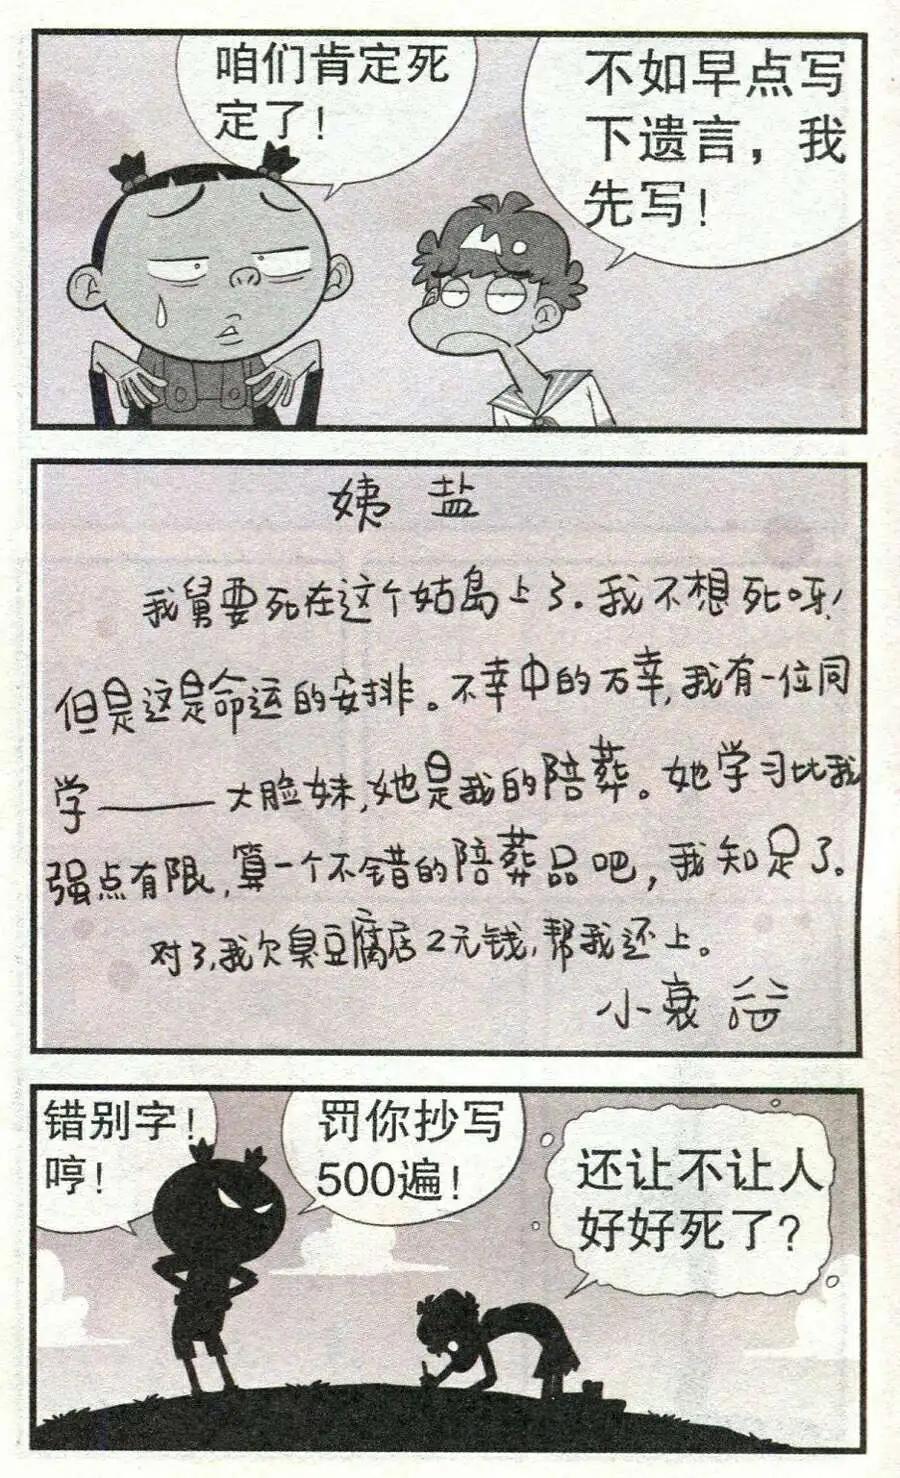 咱们肯定死
定了!
不如早点写
下遗言,我
先写!
姨 盐
我舅要死在这个姑岛上了.我不想死呀!
但是这是命运的安排。不幸中的万幸,我有一位同
学——大脸妹,她是我的陪葬。她学习比我
强点有限,算一个不错的陪葬品吧,我知足了.
对了,我欠臭豆腐店2元钱,帮我还上。
小衰
错别字!
哼!
罚你抄写
500遍!
还让不让人
好好死了?